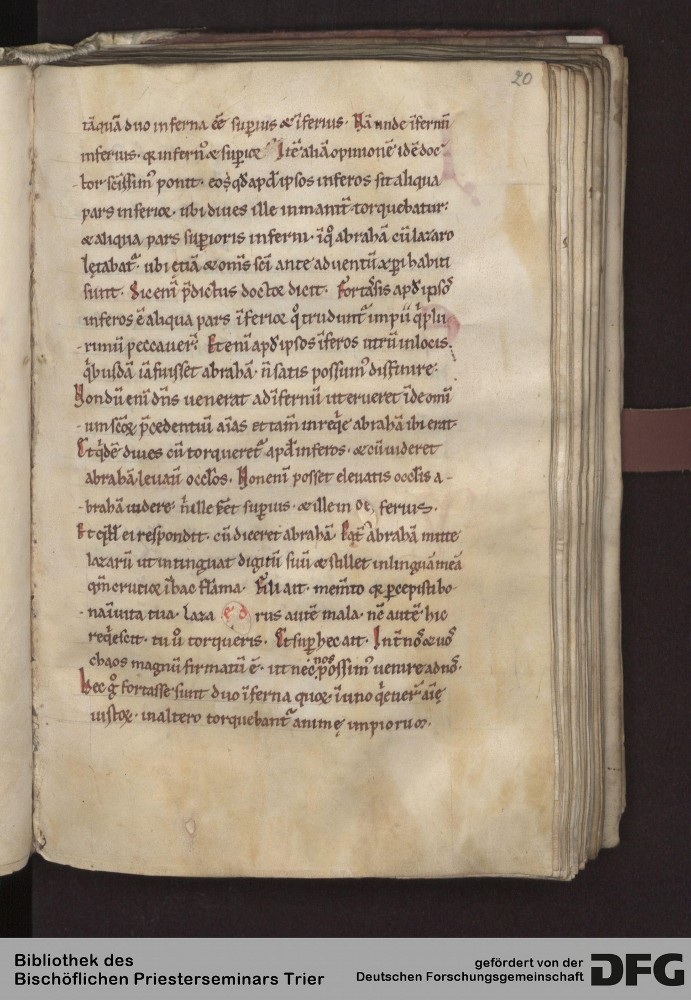 20
tāquā duo inferna eē supius & īferius. Nā unde īfernū
inferius. q̄ infern᷒ & supioꝛ Itē aliā opinionē idē doc
tor scissim᷒ ponit. eos qđ apđ ipsos inferos sit aliqua
pars inferioꝛ. ubi diues ille inmanit̄ torquebatur:
& aliqua pars supioris inferni. ī qͦ abrahā cū lazaro
lętabat᷑. ubi etiā & om̄s sc̄i ante aduentū xp̄i habiti
sunt. Sic enī p̄dictus doctoꝛ dicit. Fortassis apđ ipsos
inferos ē aliqua pars īferioꝛ qͦ trudunt᷑ impii q̄ plu
rimū peccauer̄. Et enī apđ ipsos īferos utrū in locis
q̄busdā iā fuisset abrahā. n̄ satis possum᷒ diffinire:
Nondū enī dn̄s uenerat ad īfernū ut erueret īde omī
um scōꝝ p̄cedentiū aīas et tam̄ in req̄e abrahā ibi erat.
Et q̄dē diues cū torqueret᷑ apđ inferos. & cū uideret
abrahā leuauit occlos. Non enī posset eleuatis occlis a
brahā uidere n̄ ille eēt supius. & ille in ferius.
Et qđ ei respondit. cū diceret abrahā. Pat̄ abrahā mitte
lazarū ut intinguat digitū suū & stillet in linguā meā
qm̄ crucioꝛ ī hac flāma. Fili ait. memto q̄ pcepisti bo
na ī uita tua. laza rus autē mala. nc̄ autē hic
req̄escit. tu u᷒ torqueris. Et sup hec ait. Int̄ nos & uos
chaos magnū firmatū ē. ut nec nos possim᷒ uenire ad uos.
Hec g᷒ fortasse sunt duo īferna quoꝝ ī uno q̄euer̄ aīę
iustoꝝ. in altero torquebant᷑ animę impiorum.
Bibliothek des
Bischöflichen Priesterseminars Trier
gefördert von der
Deutschen Forschungsgemeinschaft
DFG